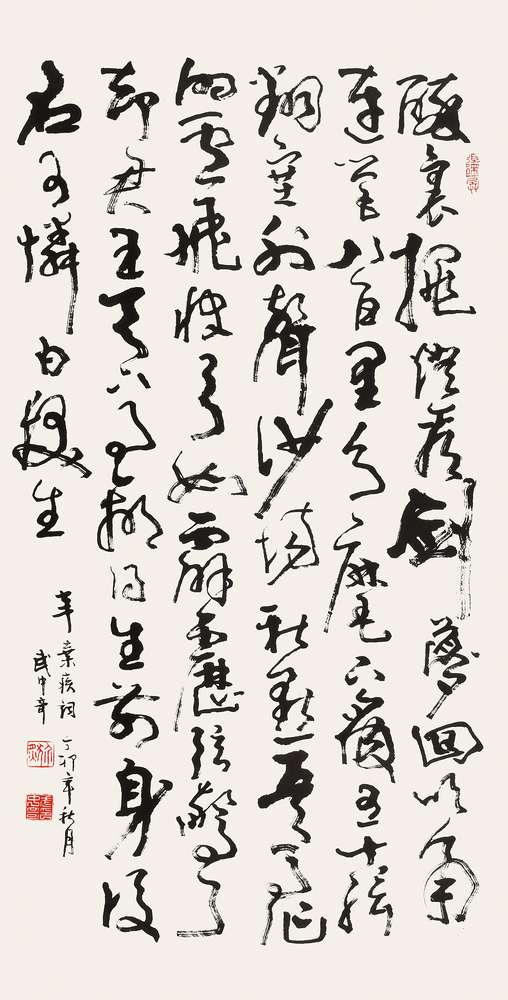 醉裏挑燈看劍夢回吹角
連營八百里分麾下炙五十弦
翻塞外聲沙場秋點兵馬作
的盧飛快弓如霹靂弦驚了
却君王天下事贏得生前身後
名可憐白髮生
辛棄疾詞丁卯年秋月
武中奇